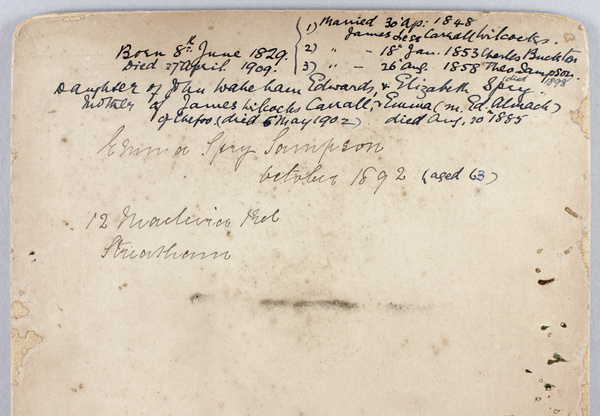 1) Married 30 ap: 1848
James Less Carrall Wilcocks.
Born 8th June 1829.
2) " - 18th Jan. 1853 Charles Buckton
Died 27 April 1909.
3) " - 26 aug. 1858 Theo Sampson.
died 1898
Daughter of John Wakeham Edwards, & Elizabeth Spry.
Mother of James Wilcocks Carrall, & Emma (m. Ed. Almack)
of Chefoo, (died 5 May 1902) died Aug. 20 1885
Emma Spry Sampson
october 1892 (aged 63)
12 Madeira
Streatham